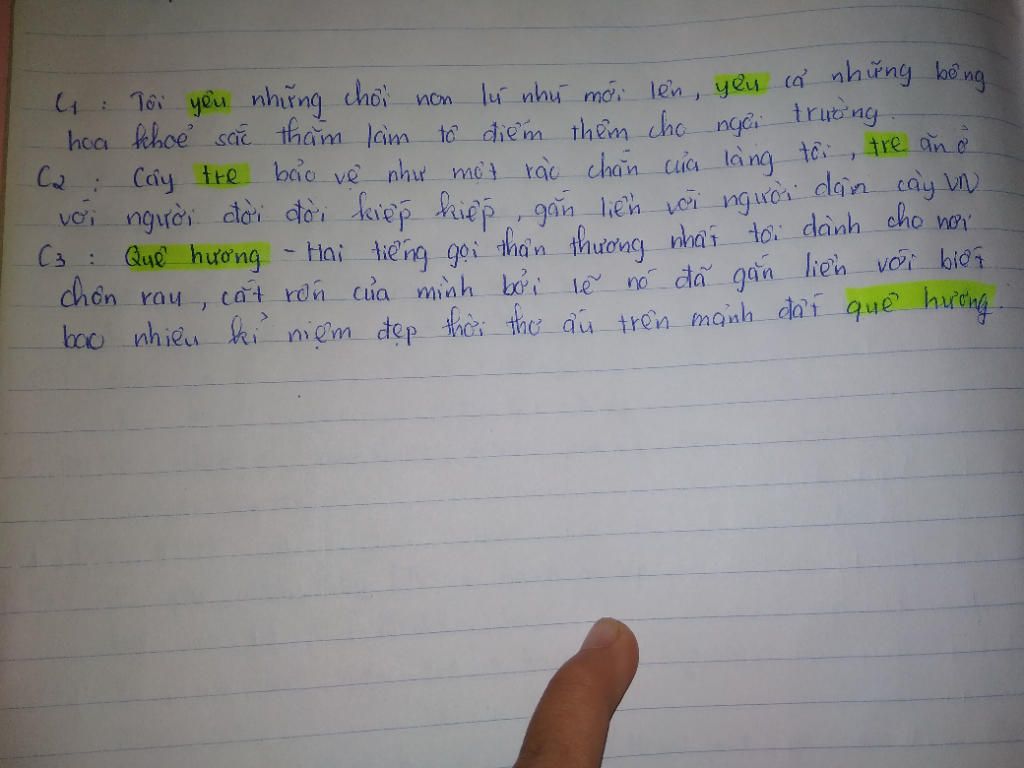 C1 : Tôi yêu những chồi non lú nhú mới lên, yêu cả những bông
hoa khoẻ sắc thắm làm tô điểm thêm cho ngôi trường.
C2 : Cây tre bảo vệ như một rác chắn của làng tôi, tre ăn ở
với người đời đời kiếp kiếp, gắn liền với người dân cày VN
C3 : Quê hương - Hai tiếng gọi thân thương nhất tôi dành cho nơi
chôn rau, cắt rốn của mình bởi lẽ nó đã gắn liền với biết
bao nhiêu kỉ niệm đẹp thời thơ ấu trên mảnh đất quê hương.